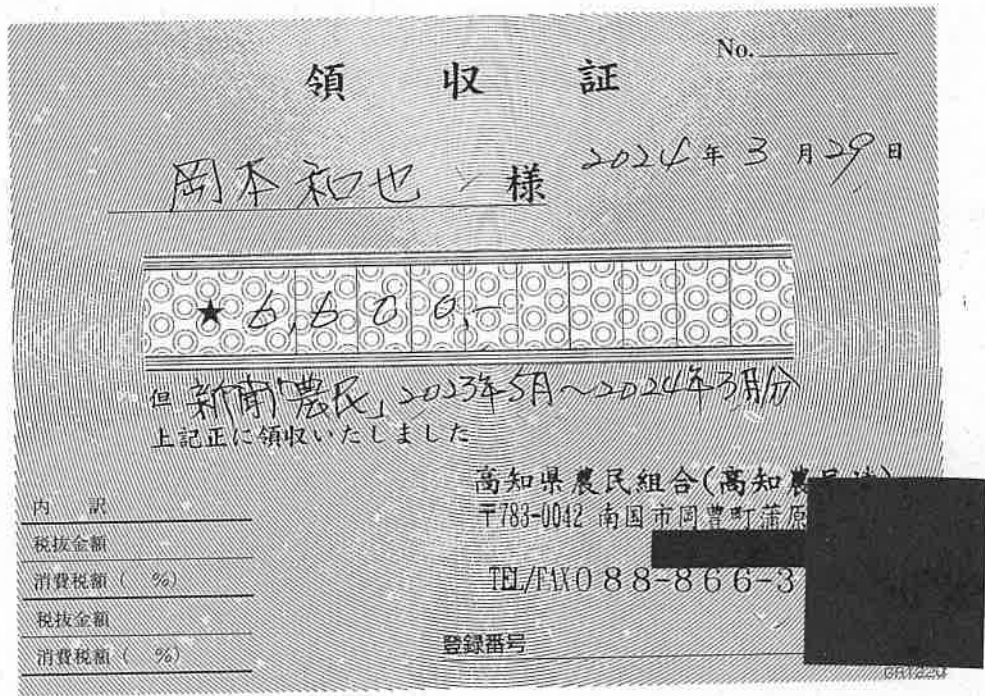 No.
領収証
岡本和也 様 2024年3月29日
★6,600,-
但 新聞「農民」2023年5月~2024年3月分
上記正に領収いたしました
高知県農民組合(高知農民連)
〒783-0042 南国市岡豊町蒲原
TEL/FAX088-866-3
内訳
税抜金額
消費税額( %)
税抜金額
消費税額( %)
登録番号